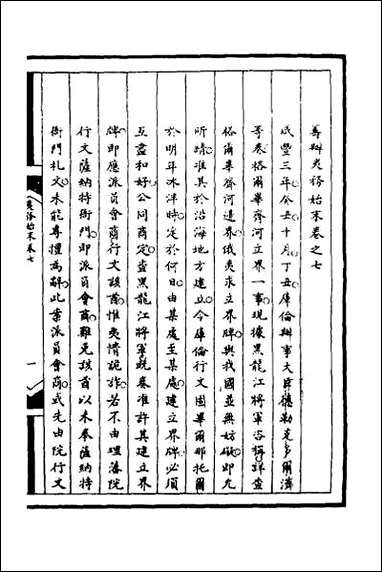 籌辦夷務始末卷之七
咸豐三年癸丑十月丁丑庫倫辦事大臣德勒克多爾濟
等奏格爾畢齊河立界一事現據黑龍江將軍咨稱詳查
俗爾畢齊河邊界俄夷求立界牌與我國並無妨礙即允
所請准其於沿海地方建立今庫倫行文固畢爾那托爾
於明年冰泮時定於何日由某處至某處建立界牌必須
互盡和好公同商定查黑龍江將軍既奏准許其建立界
牌即應派員會商行文該酋惟夷情詭詐若不由理藩院
行文薩納特衙門即派員會商難免該酋以未奉薩納特
衙門札文未能專擅為辭此案派員會商或先由院行文
夷務始末卷七
一